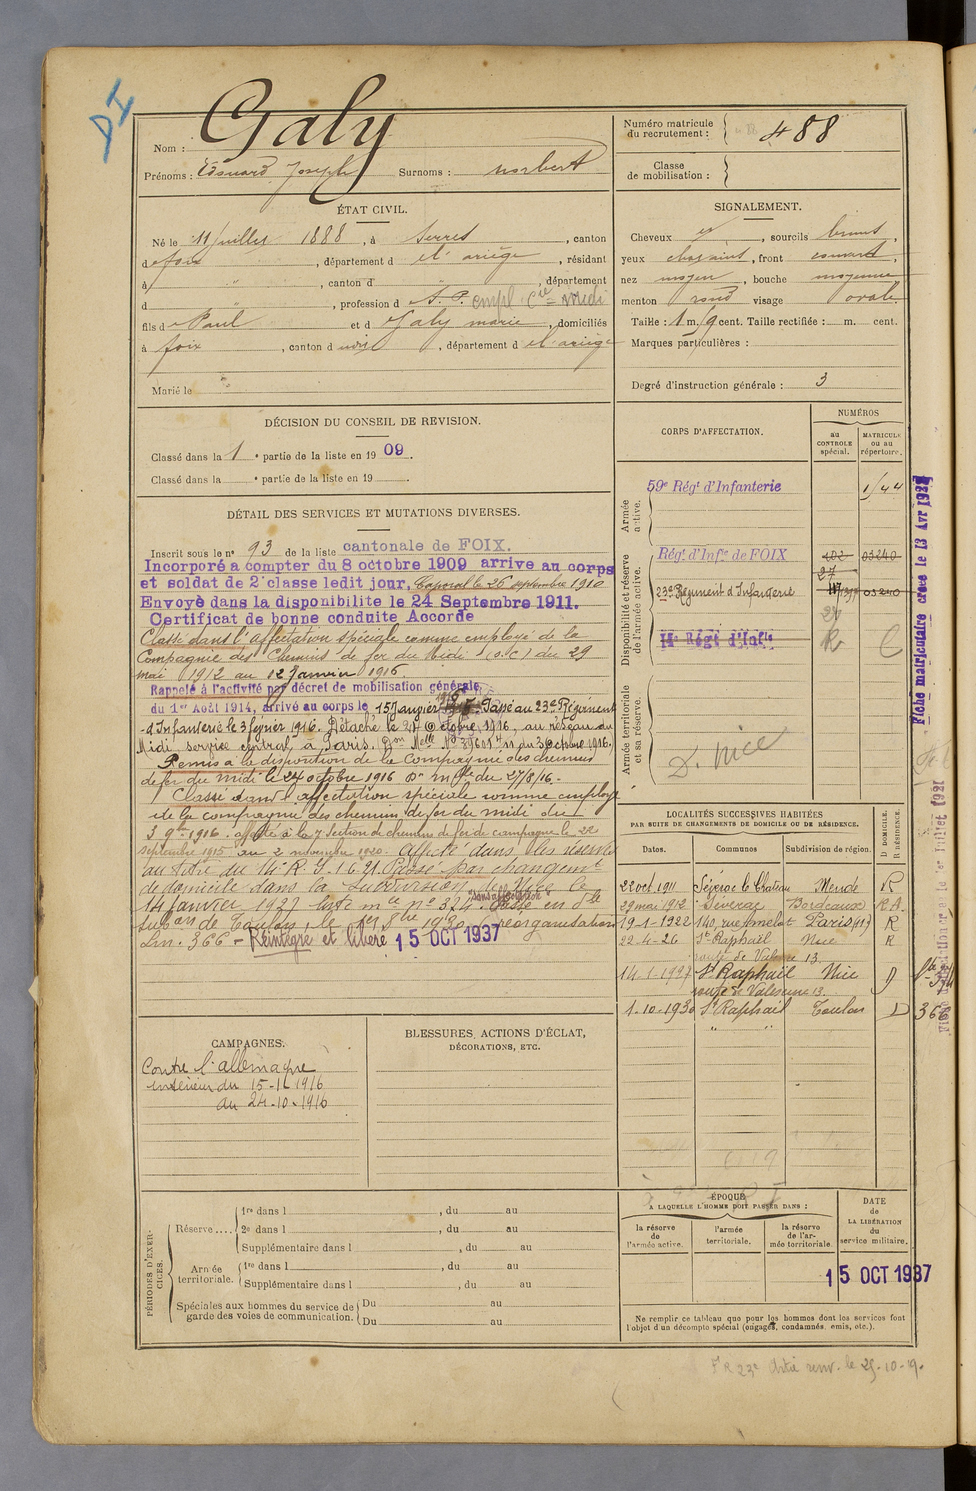 PI
Nom : Galy
Prénoms : Edouard Joseph Surnoms : norbert
Numéro matricule du recrutement : 488
Classe de mobilisation :
ÉTAT CIVIL.
Né le 11 juillet 1888, à Serres, canton
d foix, département d l'ariège, résidant
à ", canton d ", département
d ", profession d S.P. empl. Cie midi
fils d Paul et d Galy marie, domiciliés
à foix, canton d , département d l'ariège
Marié le "
SIGNALEMENT.
Cheveux , sourcils bruns,
yeux , front couvert,
nez moyen, bouche moyenne
menton rond visage ovale
Taille : 1 m. cent. Taille rectifiée : m. cent.
Marques particulières :
Degré d'instruction générale : 3
DÉCISION DU CONSEIL DE REVISION.
Classé dans la 1 e partie de la liste en 1909.
Classé dans la e partie de la liste en 19 .
DÉTAIL DES SERVICES ET MUTATIONS DIVERSES.
Inscrit sous le n° 93 de la liste cantonale de FOIX.
Incorporé a compter du 8 octobre 1909 arrive au corps
et soldat de 2e classe ledit jour, Caporal le 26 septembre 1910
Envoyè dans la disponibilite le 24 Septembre 1911.
Certificat de bonne conduite Accorde
Classé dans l'affectation spéciale comme employé de la
Compagnie des Chemins de fer du Midi (S.C) du 29
mai 1912 au 12 Janvier 1916
Rappelé à l'activité par décret de mobilisation générale
du 1er Août 1914, arrivé au corps le 15 Janvier 1916 Passé au 23e Régiment
d'Infanterie le 3 février 1916. Détaché le 24 Octobre 1916, au réseau du
Midi service central, à Paris.
Remis a la disposition de la Compagnie des chemins
de fer du midi le 24 octobre 1916 du 27/8/16.
Classé dans l'affectation spéciale comme employé
de la compagnie des chemins de fer du midi du
3 9bre 1916. affecté à la 7 Section de chemins de fer de campagne le 22
septembre 1915 au 2 novembre 1920. Affecté dans les réserves
au titre du 14e R.I. 1.6.21. Passé par changemt
de domicile dans la subdivision de Nice le
14 janvier 1927 liste mle n° 374. "Sans affectation" Passé en d.le
subon de Toulon, le 1er 8bre 1930 (réorganisation)
Lm. 366 - Réintégré et libéré 15 OCT 1937
CORPS D'AFFECTATION.
NUMÉROS
au CONTROLE spécial.
MATRICULE ou au répertoire.
Armée active.
59e Régt d'Infanterie 1/44
Disponibilité et réserve de l'armée active.
Régt d'Infie de FOIX 03240
27
23e Régiment d'Infanterie 03240
14e Régt d'Infie
Armée territoriale et sa réserve.
D. Nice
Fiche matriculaire créée le 13 Avr 192
LOCALITÉS SUCCESSIVES HABITÉES
PAR SUITE DE CHANGEMENTS DE DOMICILE OU DE RÉSIDENCE.
Dates. Communes Subdivision de région. D DOMICILE. R RÉSIDENCE.
22 oct 1911 Séverac le Château Mende R
29 mai 1912 Séverac Bordeaux R A
19-1-1922 140, rue Amelot Paris (11e) R
22-4-26 St Raphaël Nice R
route de Valesc 13
14-1-1927 St Raphaël Nice D
route de Valescure 13.
1-10-1930 St Raphaël Toulon D 366
" "
CAMPAGNES.
Contre l'allemagne
intérieur du 15-1-1916
au 24-10-1916
BLESSURES, ACTIONS D'ÉCLAT,
DÉCORATIONS, ETC.
PÉRIODES D'EXERCICES.
Réserve....
1re dans l , du au
2e dans l , du au
Supplémentaire dans l , du au
Armée territoriale.
1re dans l , du au
Supplémentaire dans l , du au
Spéciales aux hommes du service de garde des voies de communication.
Du au
Du au
ÉPOQUE
A LAQUELLE L'HOMME DOIT PASSER DANS :
la réserve de l'armée active.
l'armée territoriale.
la réserve de l'armée territoriale.
DATE de LA LIBÉRATION du service militaire.
15 OCT 1937
Ne remplir ce tableau que pour les hommes dont les services font
l'objet d'un décompte spécial (engagés, condamnés, omis, etc.).